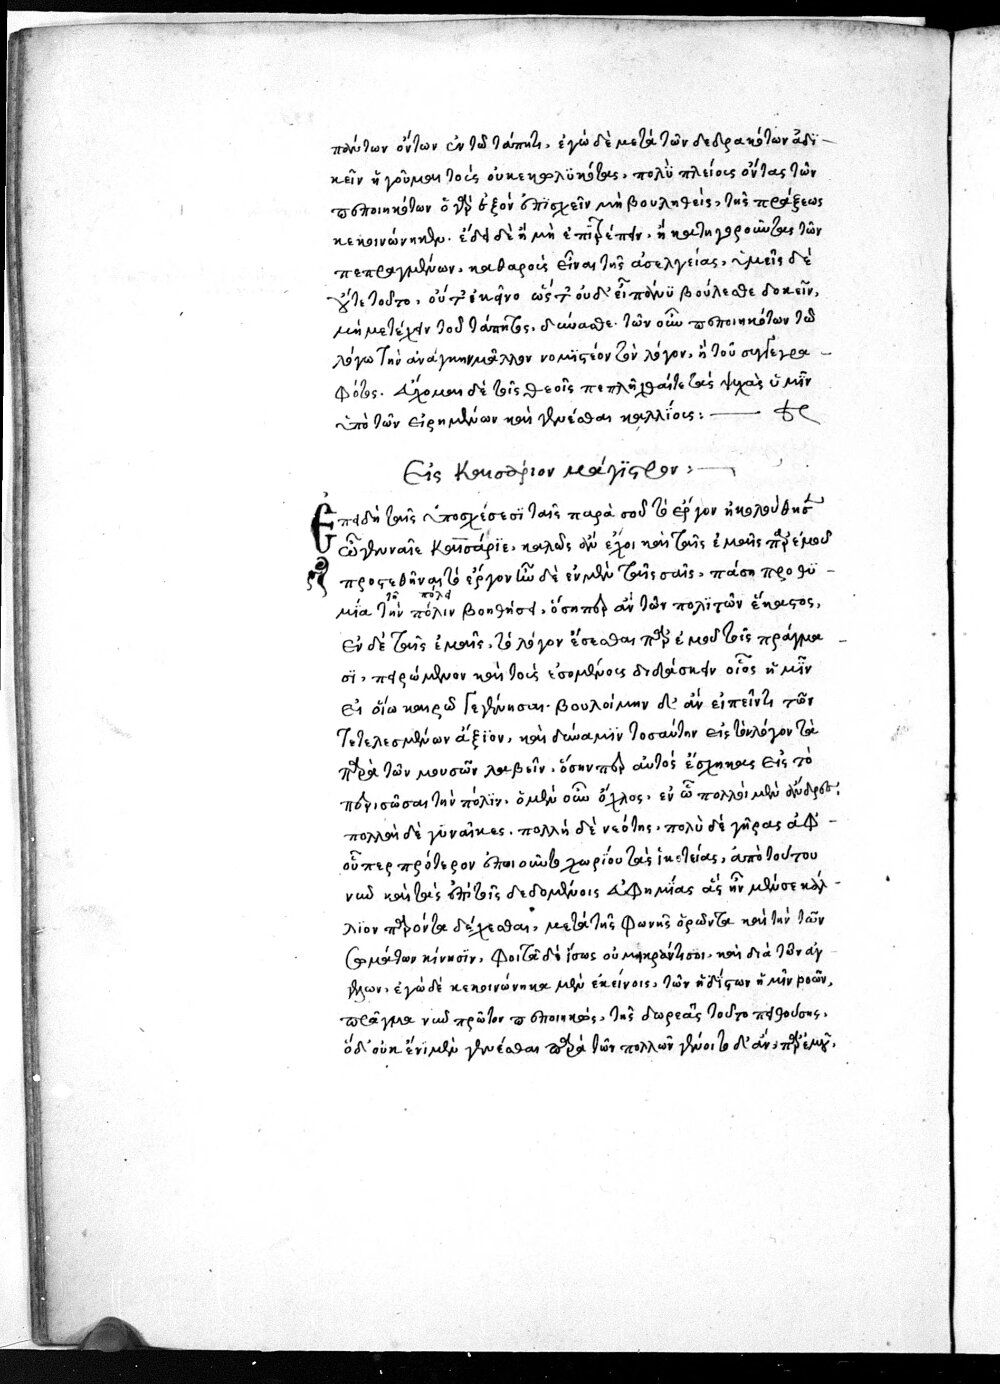 πάντων ὄντων ἐν τῶ τάπητι, ἐγὼ δὲ μετὰ τῶν δεδρακότων ἀδι-
κεῖν ἡγοῦμαι τοὺς οὐ κεκωλυκότας, πολὺ πλείους ὄντας τῶν
πεποιηκότων ὁ γὰρ ἐξὸν ἐπισχεῖν μὴ βουληθεὶς, τῆς πράξεως
κεκοινώνηκεν. ἔδει δὲ ἢ μὴ ἐπιτρέπειν, ἢ κατηγοροῦντας τῶν
πεπραγμένων, καθαροὺς εἶναι τῆς ἀσελγείας, ὑμεῖς δὲ
οὔτε τοῦτο, οὔτ' ἐκεῖνο ὥστ' οὐδ' εἰ πάνυ βούλεσθε δοκεῖν,
μὴ μετέχειν τοῦ τάπητος, δύνασθε. τῶν οὖν πεποιηκότων τῶ
λόγω τὴν ἀνάγκην μᾶλλον νομιστέον τὸν λόγον, ἢ τοῦ συγγεγρα-
φότος. εὔχομαι δὲ τοῖς θεοῖς πεπλῆχθαί τε τὰς ψυχὰς ὑμῖν
ὑπὸ τῶν εἰρημένων καὶ γενέσθαι καλλίους:
Εἰς Καισάριον μάγιστρον:
Ἐπειδὴ ταῖς ὑποσχέσεσι ταῖς παρὰ σοῦ τὸ ἔργον ἠκολούθησεν
ὦ γενναῖε Καισάριε, καλῶς ἂν ἔχοι καὶ ταῖς ἐμαῖς παρ' ἐμοῦ
προστεθῆναι τὸ ἔργον ἦν δὲ ἐν μὲν ταῖς σαῖς, πάση προθυ-
τῆ πόλει
μία τὴν πόλιν βοηθήσειν, ὅσηπερ ἂν τῶν πολιτῶν ἕκαστος,
ἐν δὲ ταῖς ἐμαῖς, τὸ λόγον ἔσεσθαι παρ' ἐμοῦ τοῖς πράγμα-
σι, πειρώμενον καὶ τοὺς ἐσομένους διδάσκειν οἷος ἡμῖν
ἐν οἵω καιρῶ γεγένησαι. βουλοίμην δ' ἂν εἰπεῖν τι τῶν
τετελεσμένων ἄξιον, καὶ δύναμιν τοσαύτην εἰς τὸν λόγον τὰ
παρὰ τῶν μουσῶν λαβεῖν, ὅσην περ αὐτὸς ἔσχηκας εἰς τὸ
περισῶσαι τὴν πόλιν. ὁ μὲν οὖν ὄχλος, ἐν ὧ πολλοὶ μὲν ἄνδρες,
πολλαὶ δὲ γυναῖκες. πολλὴ δὲ νεότης, πολὺ δὲ γῆρας ἀφ'
οὗπερ πρότερον ἐποιοῦντο χωρίου τὰς ἱκετείας, ἀπὸ τούτου
νῦν καὶ τὰς ἐπὶ τοῖς δεδομένοις εὐφημίας ἃς ἦν μέν σε κάλ-
λιον παρόντα δέχεσθαι, μετὰ τῆς φωνῆς ὁρῶντα καὶ τὴν τῶν
σωμάτων κίνησιν, φοιτᾶ δὲ ἴσως οὐ μακράν τισι, καὶ διὰ τῶν ἀγ-
γέλων, ἐγὼ δὲ κεκοινώνηκα μὲν ἐκείνοις, τῶν ἡδίστων ἡμῖν βοῶν,
πρᾶγμα νῦν πρῶτον πεποιηκὼς, τῆς δωρεᾶς τοῦτο πειθούσης,
ὃ δ' οὐκ ἔνι μὲν γενέσθαι παρὰ τῶν πολλῶν γένοιτο δ' ἂν, παρ' ἐμοῦ,